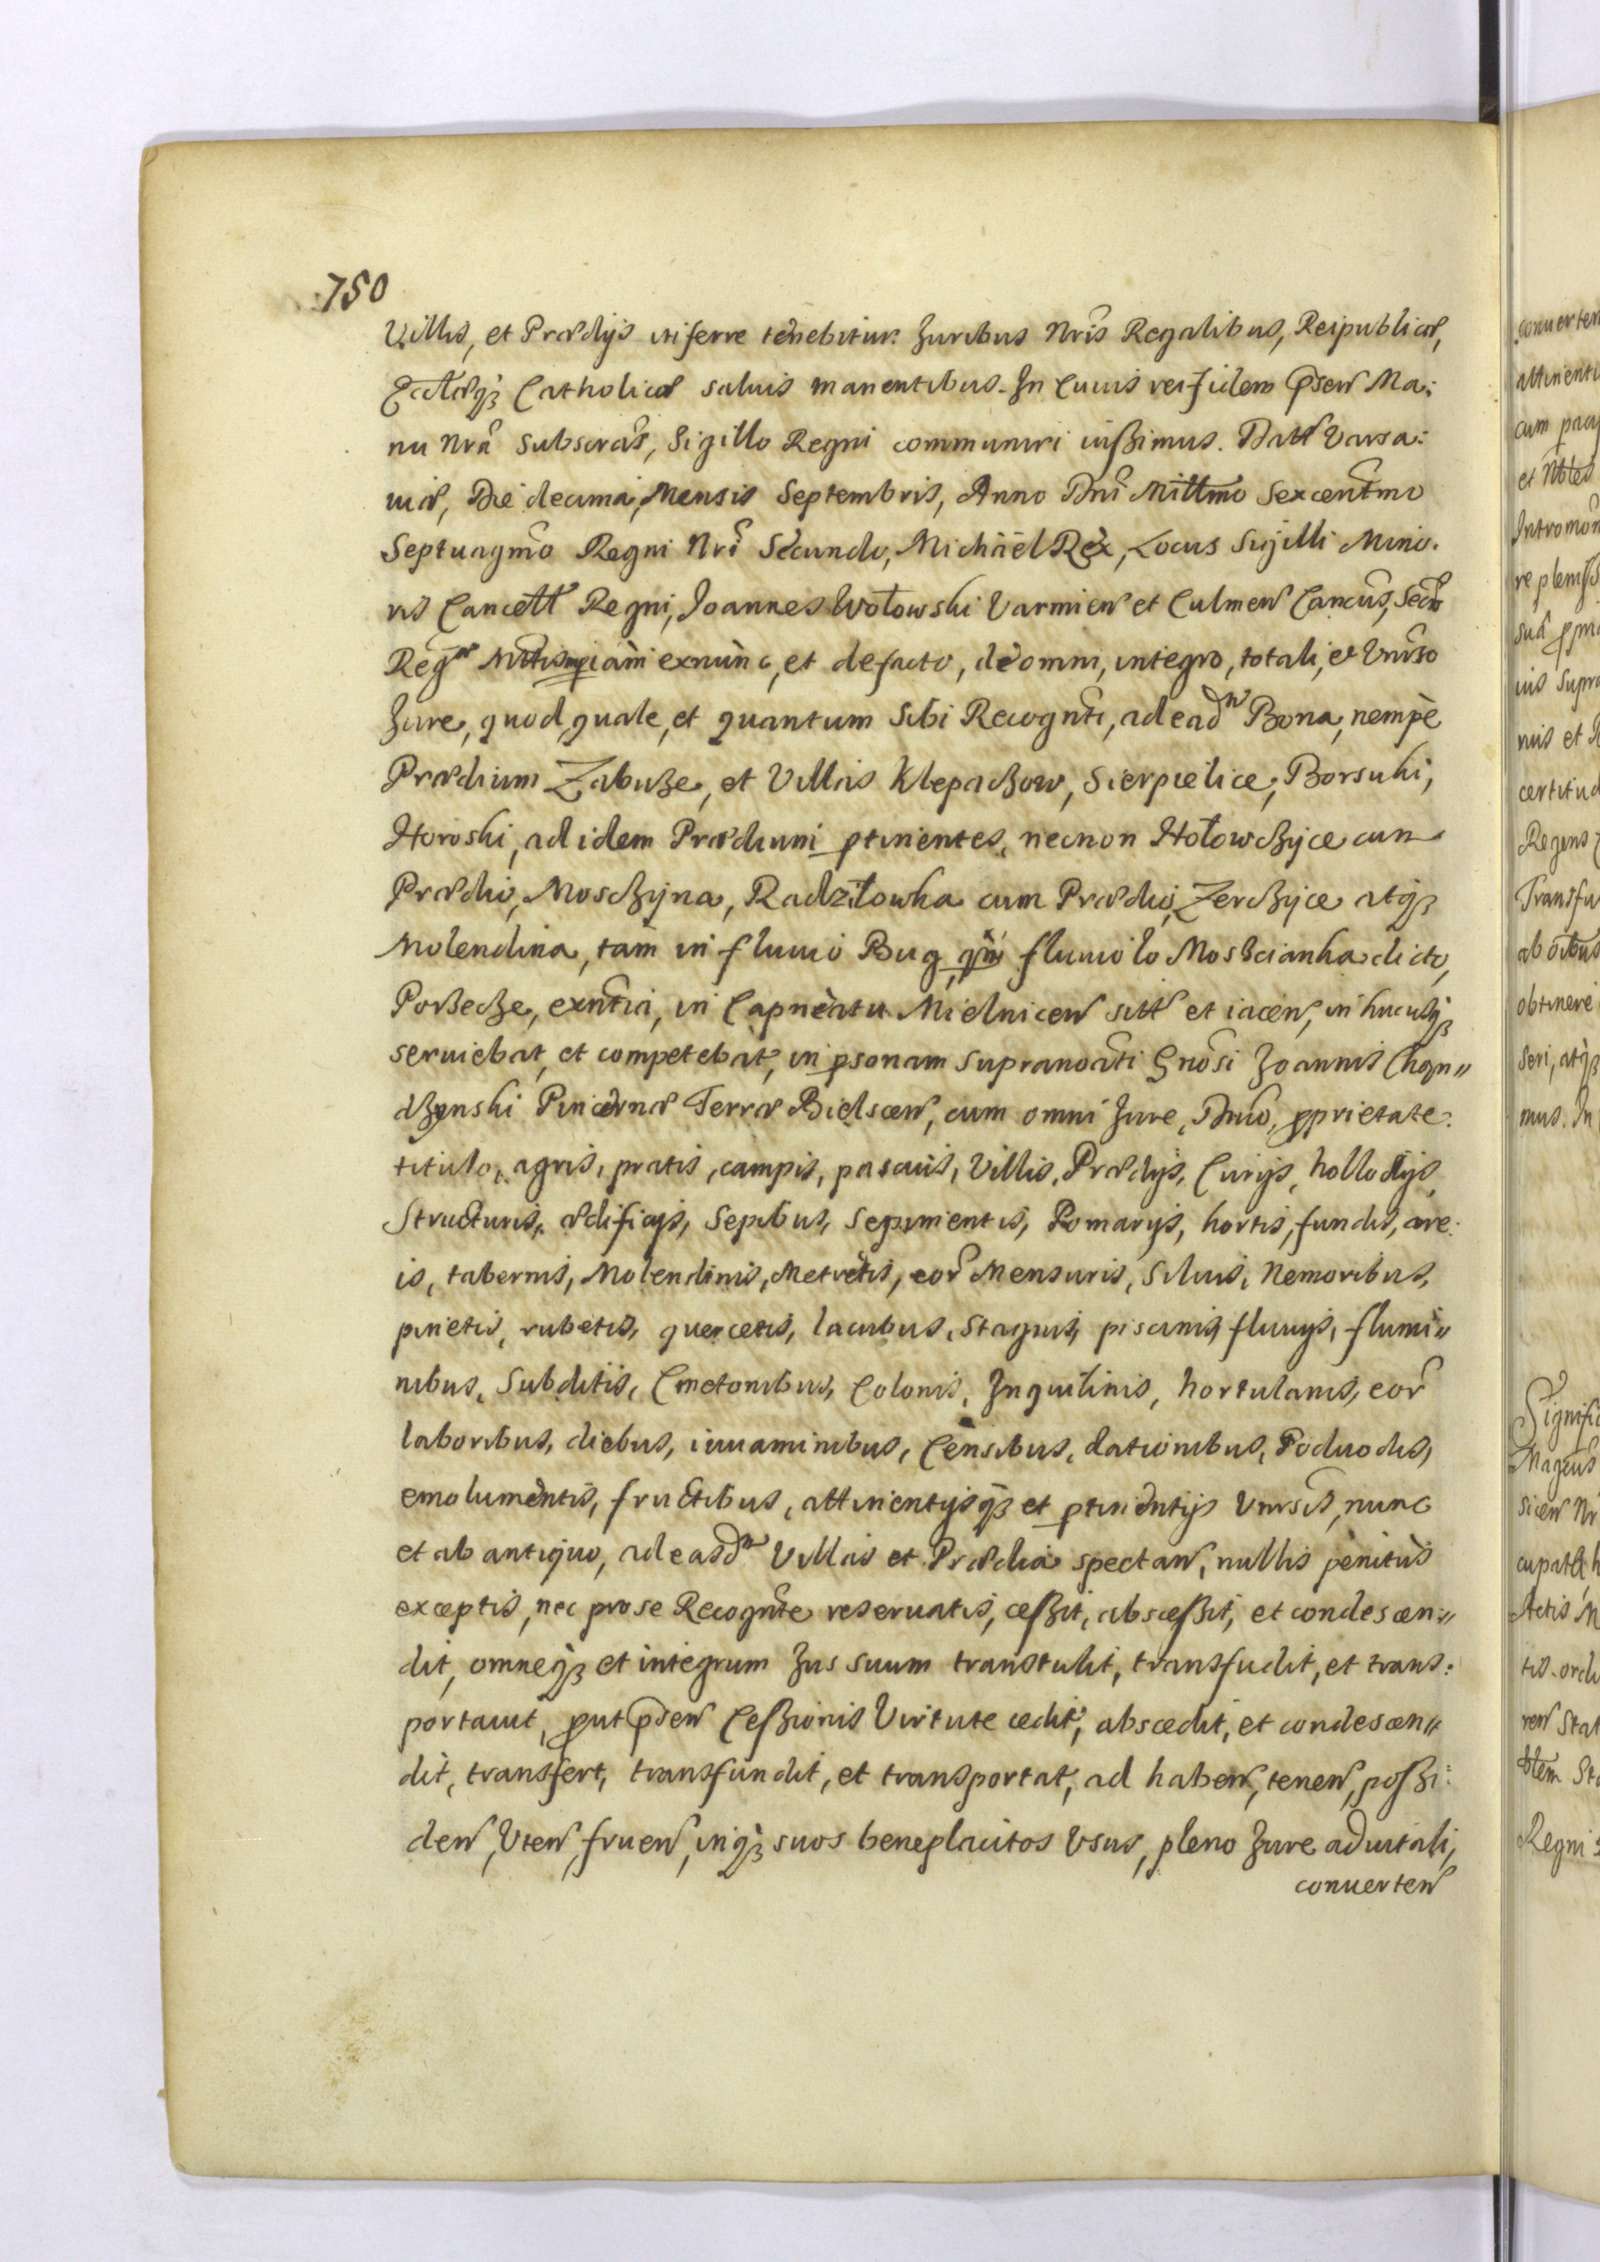 750
Villis, et Prædijs itiferre tenebitur. Juribus Nris Regalibus, Reipublicæ,
Catholicæ saluis manentibus. In Cuius rei fidem p̃sen̄ Ma:
nu Nrã Subscrãt, Sigillo Regni communiri iussimus. Datt Varsa:
uiæ, Die decima, Mensis Septembris, Anno Dñi Millmo Sexcentmo
Septuagmo Regni Nri Secundo, Michäel Rex, Locus Sigilli Mino.
ris Cancell Regni, Joannes Wołowski Varmien̄ et Culmen̄ Cancus, Secr
Reg exnunc, et defacto, de omni, integro, totali, et Vnirso
Jure, quod, quale, et quantum Sibi Recognti, ad ead Bona, nempè
Prædium Zabuże, et Villas Klepaczow, Sierpielice, Borsuki,
Horoski, ad idem Prædium ptinentes, necnon Hołowczyce cum
Prædio, Mosczyna, Radziłowka cum Prædio, Zerczyce atq3
Molendina, tam in fluuio Bug, qm̃ in fluuiolo Moszcianka dicto,
Porzecze, exntia, in Capneatu Mielnicen̄ sitt et iacen̄, in hucusq3
seruiebat, et competebat, in psonam supranoãti Gnosi Joannis Chąn"
dzynski Pincernæ Terræ Bielscen̄, cum omni Jure, Dnio, pprietate:
titulo, agris, pratis, campis, pascuis, Villis, Prædijs, Curijs, hollodijs,
Structuris, ædificijs, Sepibus, Sepimentis, Pomarijs, hortis, fundis, are:
is, tabernis, Molendinis, Metretis, eor Mensuris, Siluis, Nemoribus,
pinetis, rubetis, quercetis, lacubus, Stagnis, piscinis, fluuijs, flumi"
nibus, Subditis, Cmetonibus, Colonis, Inquilinis, hortulanis, eor
laboribus, diebus, iuuaminibus, Censibus, dationibus, Poduodis,
emolumentis, fructibus, attinentijsq3 et ptinentijs Vnirsis, nunc
et ab antiquo, ad easd Villas et Prædia spectan̄, nullis penitùs
exceptis, nec pro se Recognte reseruatis, cessit, abscessit, et condescen:"
dit, omneq3 et integrum Jus suum transtulit, transfudit, et trans:
portauit, put p̃sen̄ Cessionis Virtute cedit, abscedit, et condescen"
dit, transfert, transfundit, et transportat, ad haben̄, tenen̄, possi:
den̄, Vten̄, fruen̄, inq3 suos beneplacitos Vsus, pleno Jure aduitali,
conuerten̄